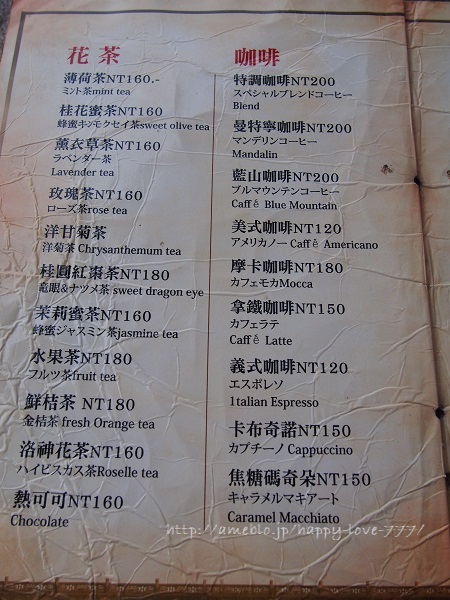 花茶
薄荷茶NT160.-
ミント茶mint tea
桂花蜜茶NT160
蜂蜜キンモクセイ茶sweet olive tea
薰衣草茶NT160
ラベンダー茶
Lavender tea
玫瑰茶NT160
ローズ茶rose tea
洋甘菊茶
洋菊茶 Chrysanthemum tea
桂圓紅棗茶NT180
竜眼&ナツメ茶 sweet dragon eye
茉莉蜜茶NT160
蜂蜜ジャスミン茶jasmine tea
水果茶NT180
フルツ茶fruit tea
鮮桔茶 NT180
金桔茶 fresh Orange tea
洛神花茶NT160
ハイビスカス茶Roselle tea
熱可可NT160
Chocolate
咖啡
特調咖啡NT200
スペシャルブレンドコーヒー
Blend
曼特寧咖啡NT200
マンデリンコーヒー
Mandalin
藍山咖啡NT200
ブルマウンテンコーヒー
Caffé Blue Mountain
美式咖啡NT120
アメリカノー Caffé Americano
摩卡咖啡NT180
カフェモカMocca
拿鐵咖啡NT150
カフェラテ
Caffé Latte
義式咖啡NT120
エスポレソ
1talian Espresso
卡布奇諾NT150
カプチーノ Cappuccino
焦糖碼奇朵NT150
キャラメルマキアート
Caramel Macchiato
http://ameblo.jp/happy-love-777/